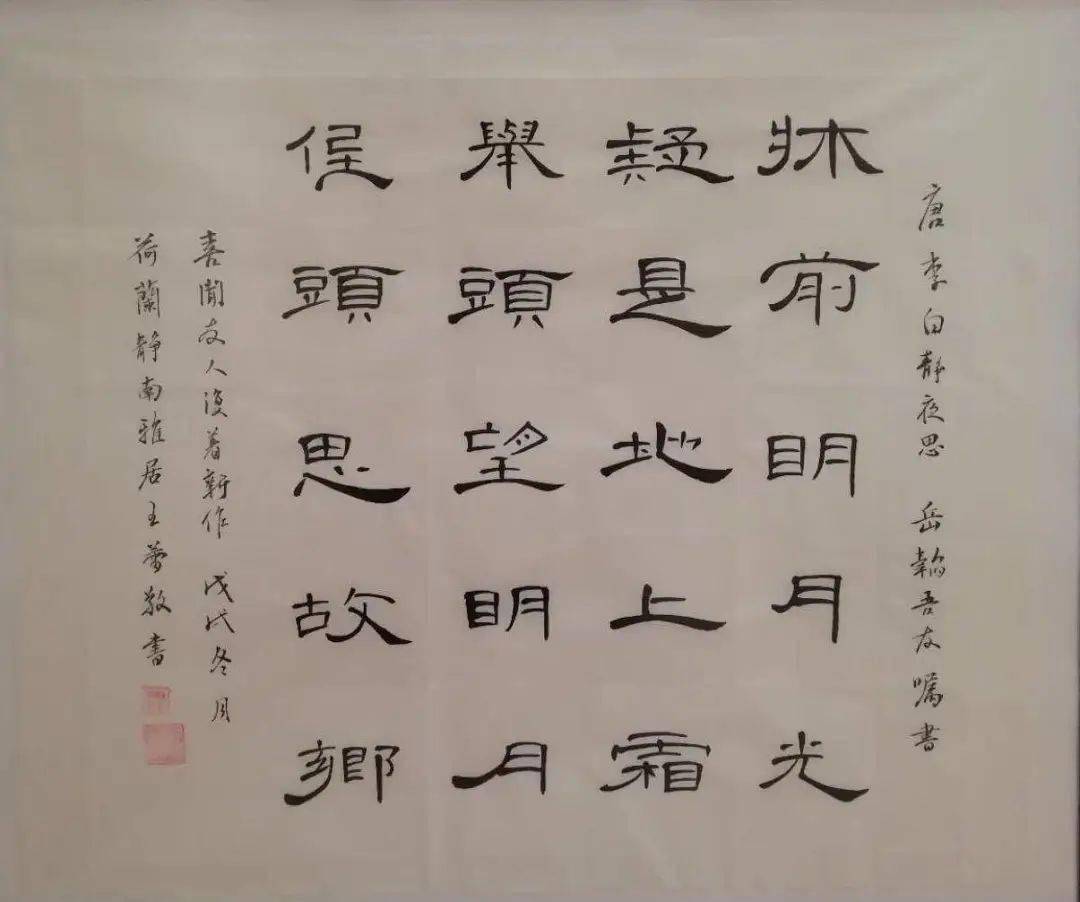 唐李白靜夜思 岳韜吾友囑書
牀前明月光
疑是地上霜
舉頭望明月
低頭思故鄉
喜聞友人復著新作 戊戌冬月
荷蘭靜南雅居王蕾敬書